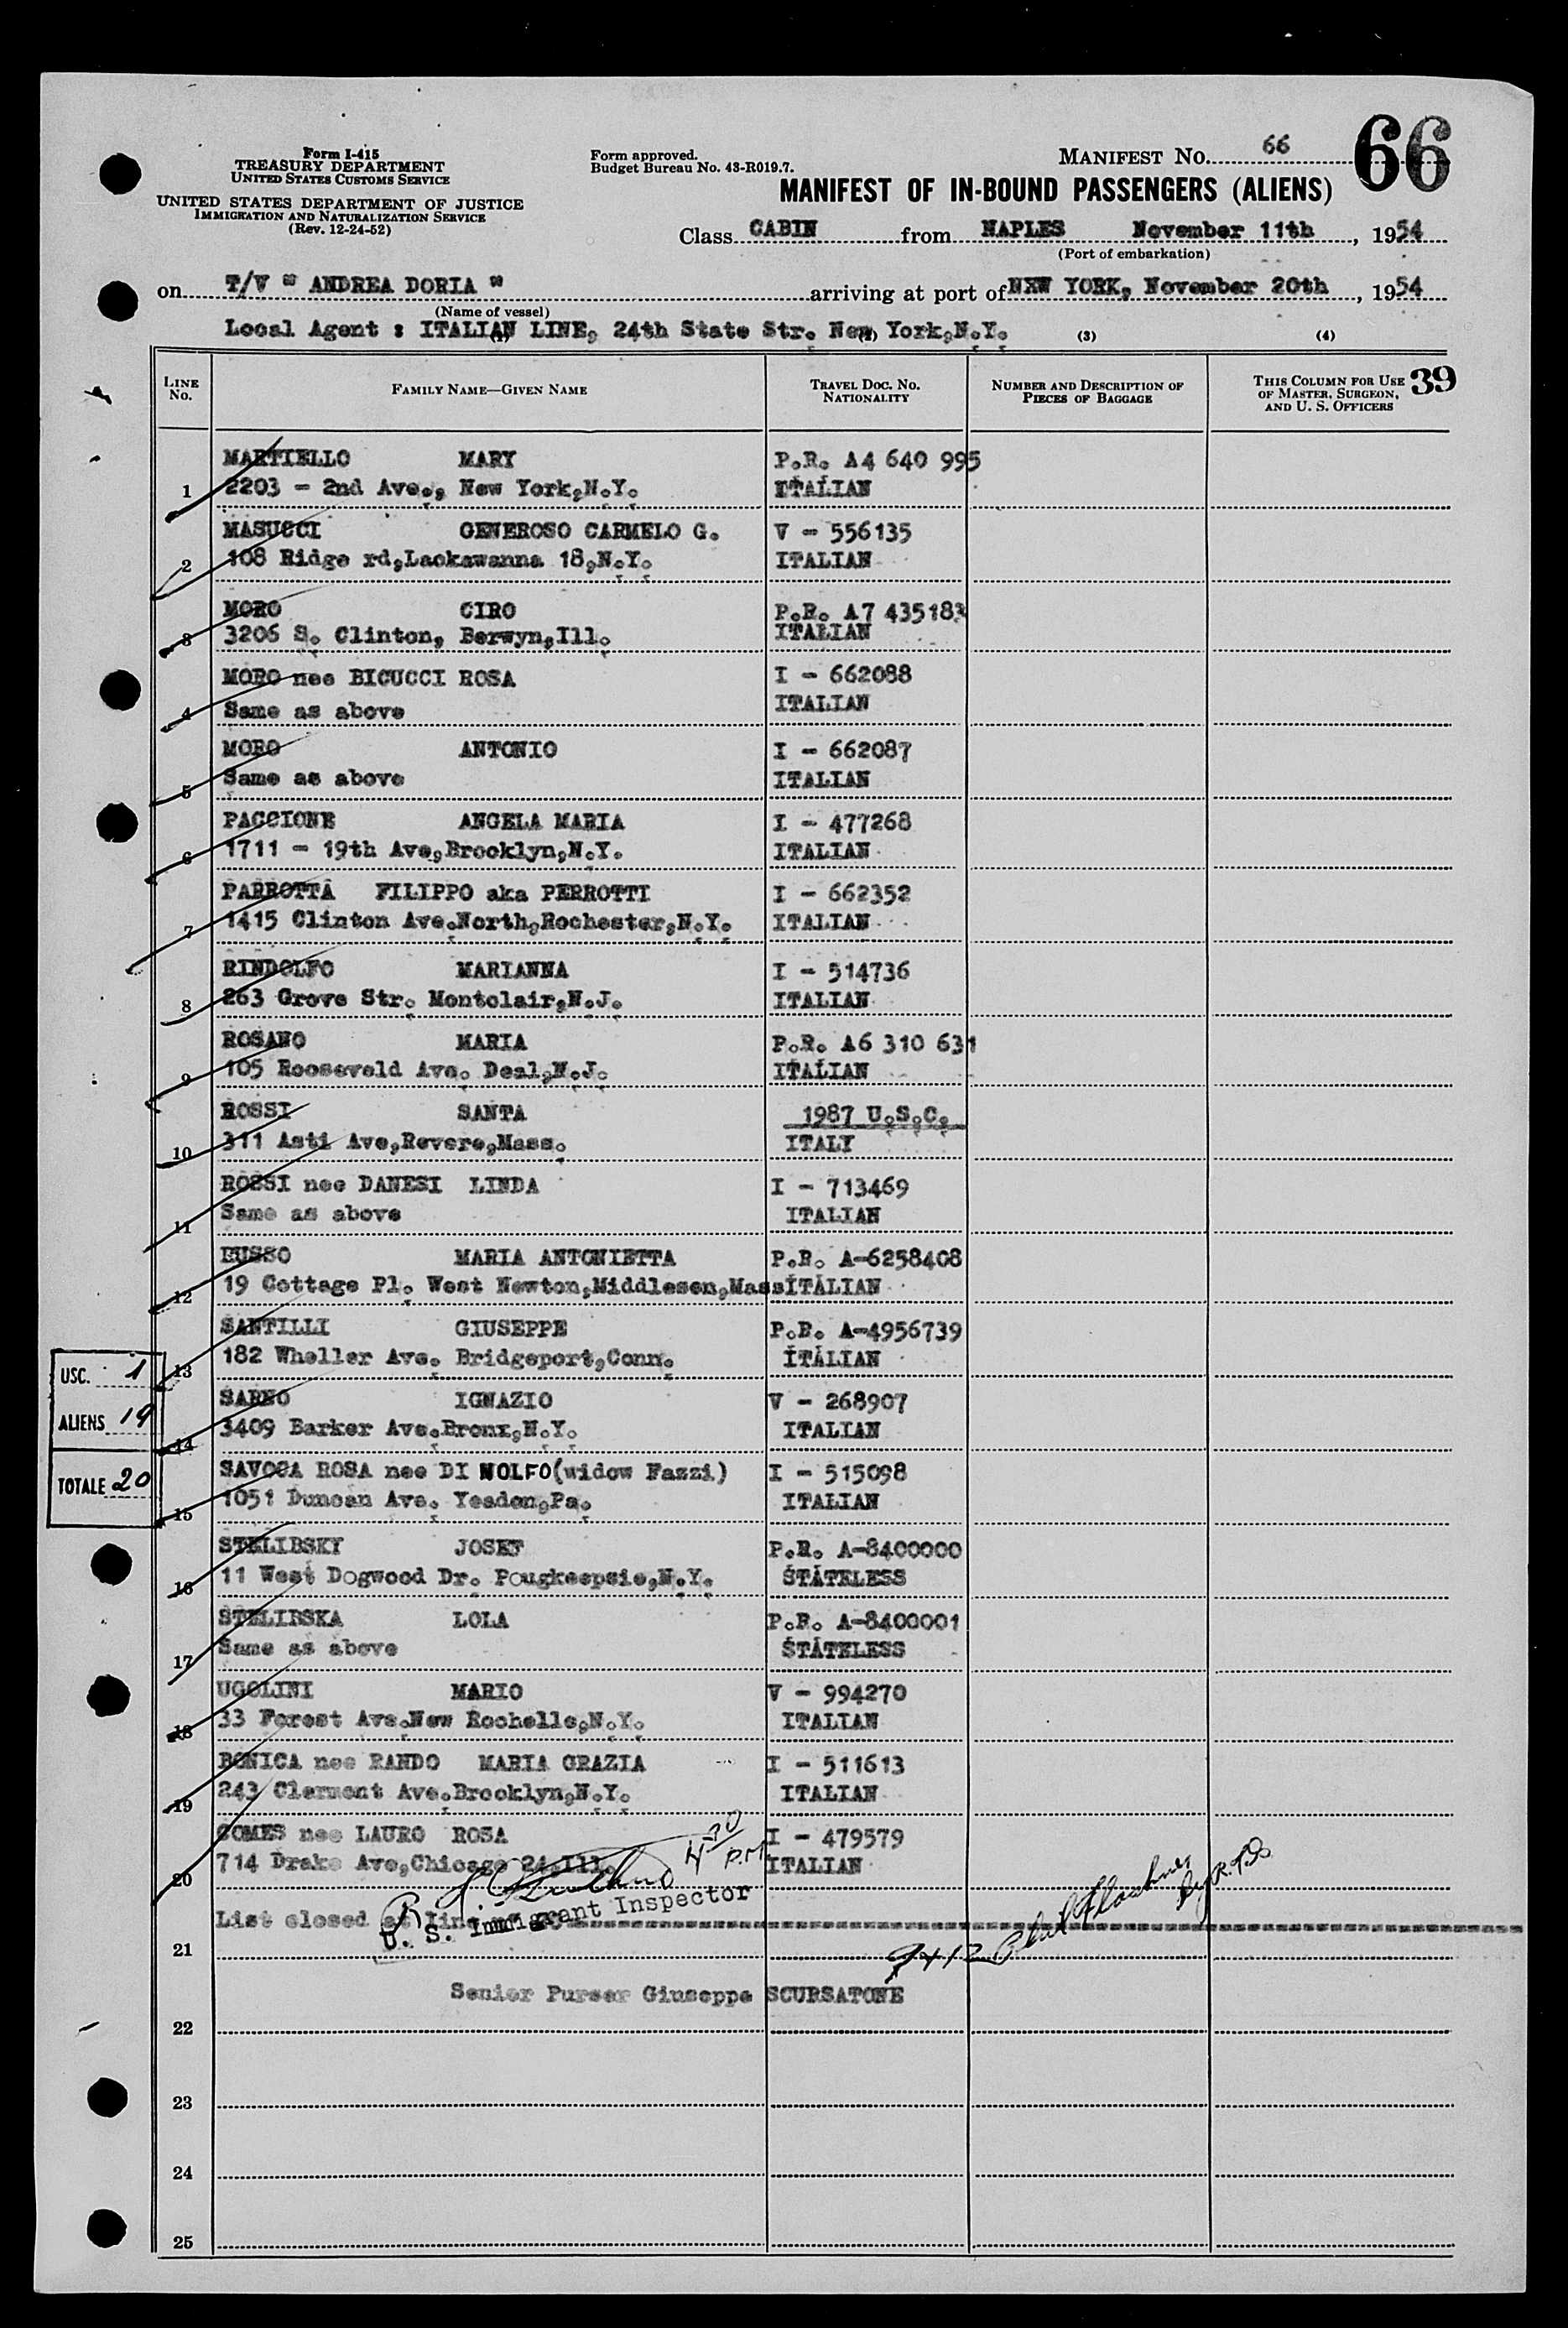 Form I-415
TREASURY DEPARTMENT
UNITED STATES CUSTOMS SERVICE
UNITED STATES DEPARTMENT OF JUSTICE
IMMIGRATION AND NATURALIZATION SERVICE
(Rev. 12-24-52)
Form approved.
Budget Bureau No. 43-R019.7.
MANIFEST NO. 66
66
MANIFEST OF IN-BOUND PASSENGERS (ALIENS)
Class CABIN from NAPLES November 11th, 1954
(Port of embarkation)
on T/V " ANDREA DORIA " arriving at port of NEW YORK, November 20th, 1954
(Name of vessel)
Local Agent : ITALIAN LINE, 24th State Str. New York,N.Y.
(1) (2) (3) (4)
LINE No. FAMILY NAME—GIVEN NAME TRAVEL DOC. NO. NATIONALITY NUMBER AND DESCRIPTION OF PIECES OF BAGGAGE THIS COLUMN FOR USE OF MASTER, SURGEON, AND U. S. OFFICERS 39
MARTIELLO MARY P.R. A4 640 995
1 2203 - 2nd Ave., New York,N.Y. ITALIAN
MASUCCI GENEROSO CARMELO G. V - 556135
2 108 Ridge rd,Lackawanna 18,N.Y. ITALIAN
MORO CIRO P.R. A7 435183
3 3206 S. Clinton, Berwyn,Ill. ITALIAN
MORO nee BICUCCI ROSA I - 662088
4 Same as above ITALIAN
MORO ANTONIO I - 662087
5 Same as above ITALIAN
PACCIONE ANGELA MARIA I - 477268
6 1711 - 19th Ave,Brooklyn,N.Y. ITALIAN
PARROTTA FILIPPO aka PERROTTI I - 662352
7 1415 Clinton Ave.North,Rochester,N.Y. ITALIAN
RINDOLFO MARIANNA I - 514736
8 263 Grove Str. Montclair,N.J. ITALIAN
ROSANO MARIA P.R. A6 310 631
9 105 Rooseveld Ave. Deal,N.J. ITALIAN
ROSSI SANTA 1987 U.S.C.
10 311 Asti Ave,Revere,Mass. ITALY
ROSSI nee DANESI LINDA I - 713469
11 Same as above ITALIAN
RUSSO MARIA ANTONIETTA P.R. A-6258408
12 19 Cottage Pl. West Newton,Middlesen,Mass ITALIAN
SANTILLI GIUSEPPE P.R. A-4956739
13 182 Wheller Ave. Bridgeport,Conn. ITALIAN
SARNO IGNAZIO V - 268907
14 3409 Barker Ave.Bronx,N.Y. ITALIAN
SAVOCA ROSA nee DI NOLFO(widow Fazzi) I - 515098
15 1051 Duncan Ave. Yeadon,Pa. ITALIAN
STELIBSKY JOSEF P.R. A-8400000
16 11 West Dogwood Dr. Pougkeepsie,N.Y. STATELESS
STELIBSKA LOLA P.R. A-8400001
17 Same as above STATELESS
UGOLINI MARIO V - 994270
18 33 Forest Ave.New Rochelle,N.Y. ITALIAN
BONICA nee RANDO MARIA GRAZIA I - 511613
19 243 Clermont Ave.Brooklyn,N.Y. ITALIAN
GOMES nee LAURO ROSA I - 479579
20 714 Drake Ave,Chicago 24,Ill. ITALIAN
4 30 P.M.
List closed at line
U. S. Immigrant Inspector
21
Senior Purser Giuseppe SCURSATONE
22
23
24
25
USC. 1
ALIENS 19
TOTALE 20